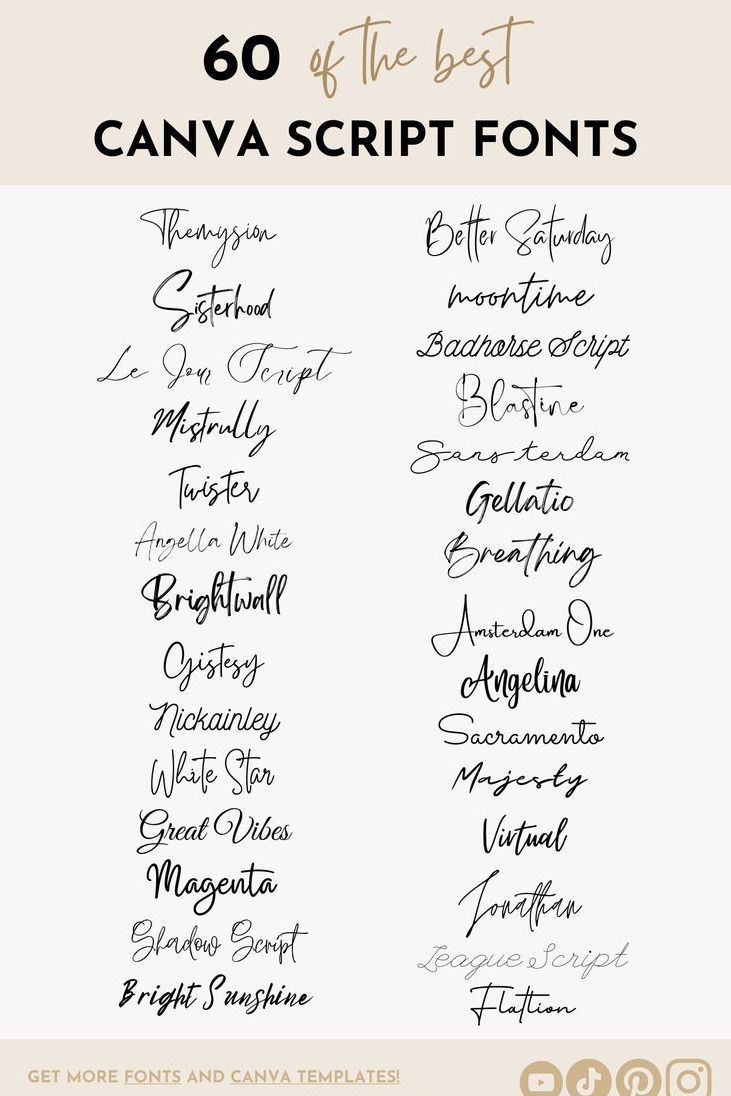 60 of the best
CANVA SCRIPT FONTS
Themysion
Sisterhood
Le Jour Script
Mistrully
Twister
Angella White
Brightwall
Gistesy
Nickainley
White Star
Great Vibes
Magenta
Shadow Script
Bright Sunshine
Better Saturday
moontime
Badhorse Script
Blastine
Sansterdam
Gellatio
Breathing
Amsterdam One
Angelina
Sacramento
Majesty
Virtual
Jonathan
League Script
Flattion
GET MORE FONTS AND CANVA TEMPLATES!